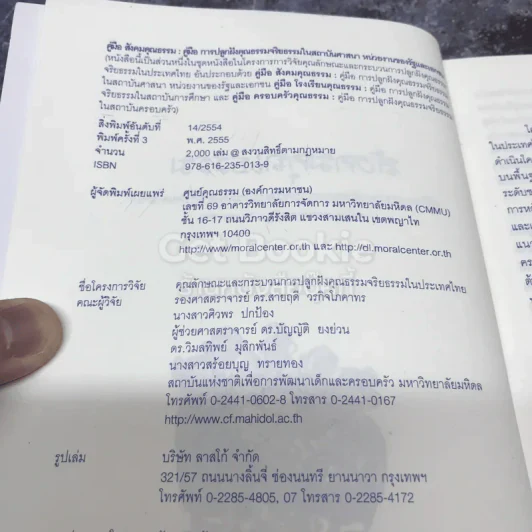 คู่มือ สังคมคุณธรรม : คู่มือ การปลูกฝังคุณธรรมจริยธรรมในสถาบันศาสนา หน่วยงานของรัฐและเอกชน
(หนังสือนี้เป็นส่วนหนึ่งในชุดหนังสือในโครงการการวิจัยคุณลักษณะและกระบวนการปลูกฝังคุณธรรม
จริยธรรมในประเทศไทย อันประกอบด้วย คู่มือ สังคมคุณธรรม : คู่มือ การปลูกฝังคุณธรรมจริยธรรม
ในสถาบันศาสนา หน่วยงานของรัฐและเอกชน คู่มือ โรงเรียนคุณธรรม : คู่มือ การปลูกฝังคุณธรรม
จริยธรรมในสถาบันการศึกษา และ คู่มือ ครอบครัวคุณธรรม : คู่มือ การปลูกฝังคุณธรรมจริยธรรม
ในสถาบันครอบครัว)
สิ่งพิมพ์อันดับที่ 14/2554
พิมพ์ครั้งที่ 3 พ.ศ. 2555
จำนวน 2,000 เล่ม @ สงวนสิทธิ์ตามกฎหมาย
ISBN 978-616-235-013-9
ผู้จัดพิมพ์เผยแพร่ ศูนย์คุณธรรม (องค์การมหาชน)
เลขที่ 69 อาคารวิทยาลัยการจัดการ มหาวิทยาลัยมหิดล (CMMU)
ชั้น 16-17 ถนนวิภาวดีรังสิต แขวงสามเสนใน เขตพญาไท
กรุงเทพฯ 10400
http://www.moralcenter.or.th และ http://dl.moralcenter.or.th
Get Bookie
ชื่อโครงการวิจัย คุณลักษณะและกระบวนการปลูกฝังคุณธรรมจริยธรรมในประเทศไทย
คณะผู้วิจัย รองศาสตราจารย์ ดร.สายฤดี วรกิจโภคาทร
นางสาวศิวพร ปกป้อง
ผู้ช่วยศาสตราจารย์ ดร.บัญญัติ ยงย่วน
ดร.วิมลทิพย์ มุสิกพันธ์
นางสาวสร้อยบุญ ทรายทอง
สถาบันแห่งชาติเพื่อการพัฒนาเด็กและครอบครัว มหาวิทยาลัยมหิดล
โทรศัพท์ 0-2441-0602-8 โทรสาร 0-2441-0167
http://www.cf.mahidol.ac.th
รูปเล่ม บริษัท ลาสโก้ จำกัด
321/57 ถนนนางลิ้นจี่ ช่องนนทรี ยานนาวา กรุงเทพฯ
โทรศัพท์ 0-2285-4805, 07 โทรสาร 0-2285-4172
ในประเทศ
ดำเนินโค
บนพื้นฐ
ระดับข
การห
และเ
แน
คร
ด้